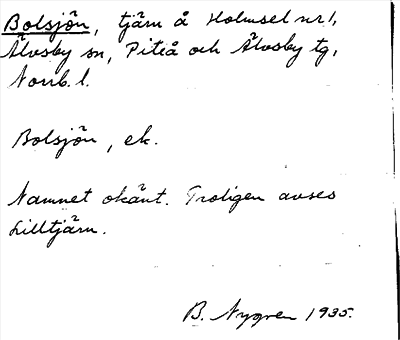 Bolsjön, tjärn å Holmsel nr 1,
Älvsby sn, Piteå och Älvsby tg,
Norrb. l.
Bolsjön, ek.
Namnet okänt. Troligen avses
Lilltjärn.
B. Nygren 1935.